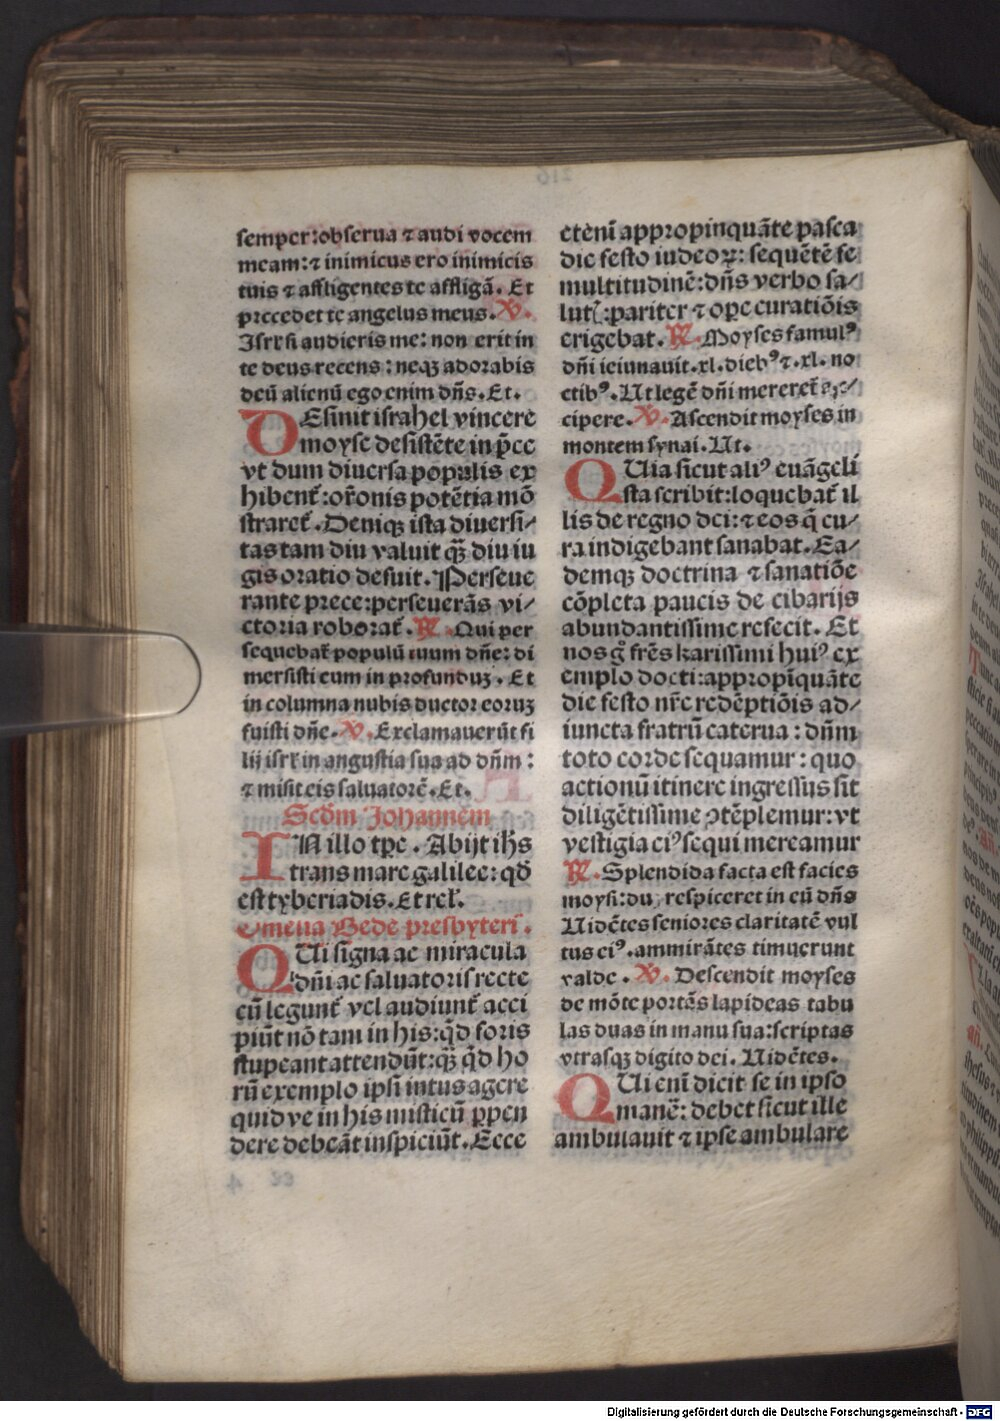 semper:obserua ⁊ audi vocem
meam:⁊ inimicus ero inimicis
tuis ⁊ affligentes te affligā. Et
precedet te angelus meus. V.
Isrl̄ si audieris me: non erit in
te deus recens: neqꝫ adorabis
deū alienū ego enim dn̄s. Et.
DEsinit israhel vincere
moyse desistēte in p̄ce
vt dum diuersa populis ex
hibent̄:or̄onis potētia mō
straret̄. Demqꝫ ista diuersi/
tas tam diu valuit qꝫ̄ diu iu
gis oratio defuit. Perseue
rante prece:perseuerās vi/
ctoria roborat̄. R. Qui per
sequebat̄ populū tuum dn̄e: di
mersisti eum in profunduꝫ. Et
in columna nubis ductor eoruꝫ
fuisti dn̄e. V. Exclamauerūt fi
lij isrl̄ in angustia sua ad dn̄m:
⁊ misit eis saluatorē. Et.
Scd̄m Johannem
IN illo tp̄e. Abijt ih̄s
trans mare galilee: qd̄
est tyberiadis. Et rel̄.
Omelia Bede presbyteri.
QUi signa ac miracula
dn̄i ac saluatoris recte
cū legunt̄ vel audiunt̄ acci
piūt nō tam in his:qd̄ foris
stupeant attendūt:qꝫ̄ qd̄ ho
rū exemplo ipsi intus agere
quid ve in his misticū ꝑpen
dere debeāt inspiciūt. Ecce
etenī appropinquāte pasca
die festo iudeoꝝ: sequētē se
multitudinē:dn̄s verbo sa/
lutꝭ:pariter ⁊ ope curatiōis
erigebat. R. Moyses famulꝰ
dn̄i ieiunauit.xl.diebꝰ⁊.xl.no
ctibꝰ. Ut legē dn̄i mereret̄ ac/
cipere. V. Ascendit moyses in
montem synai. Ut.
QUia sicut aliꝰ euāgeli
sta scribit:loquebat̄ il
lis de regno dei:⁊ eos q̄ cu/
ra indigebant sanabat. Ea/
demqꝫ doctrina ⁊ sanatiōe
cōpleta paucis de cibarijs
abundantissime refecit. Et
nos gͦ fr̄es karissimi huiꝰ ex
emplo docti:appropīquāte
die festo nr̄e redēptiōis ad/
iuncta fratrū caterua: dn̄m
toto corde sequamur: quo
actionū itinere ingressus sit
diligētissime ꝯtēplemur: vt
vestigia eiꝰ sequi mereamur
R. Splendida facta est facies
moysi:dū respiceret in eū dn̄s
Uidētes seniores claritatē vul
tus eiꝰ. ammirātes timuerunt
valde. V. Descendit moyses
de mōte portās lapideas tabu
las duas in manu sua:scriptas
vtrasqꝫ digito dei. Uidētes.
QUi enī dicit se in ipso
manē: debet sicut ille
ambulauit ⁊ ipse ambulare
Digitalisierung gefördert durch die Deutsche Forschungsgemeinschaft - DFG